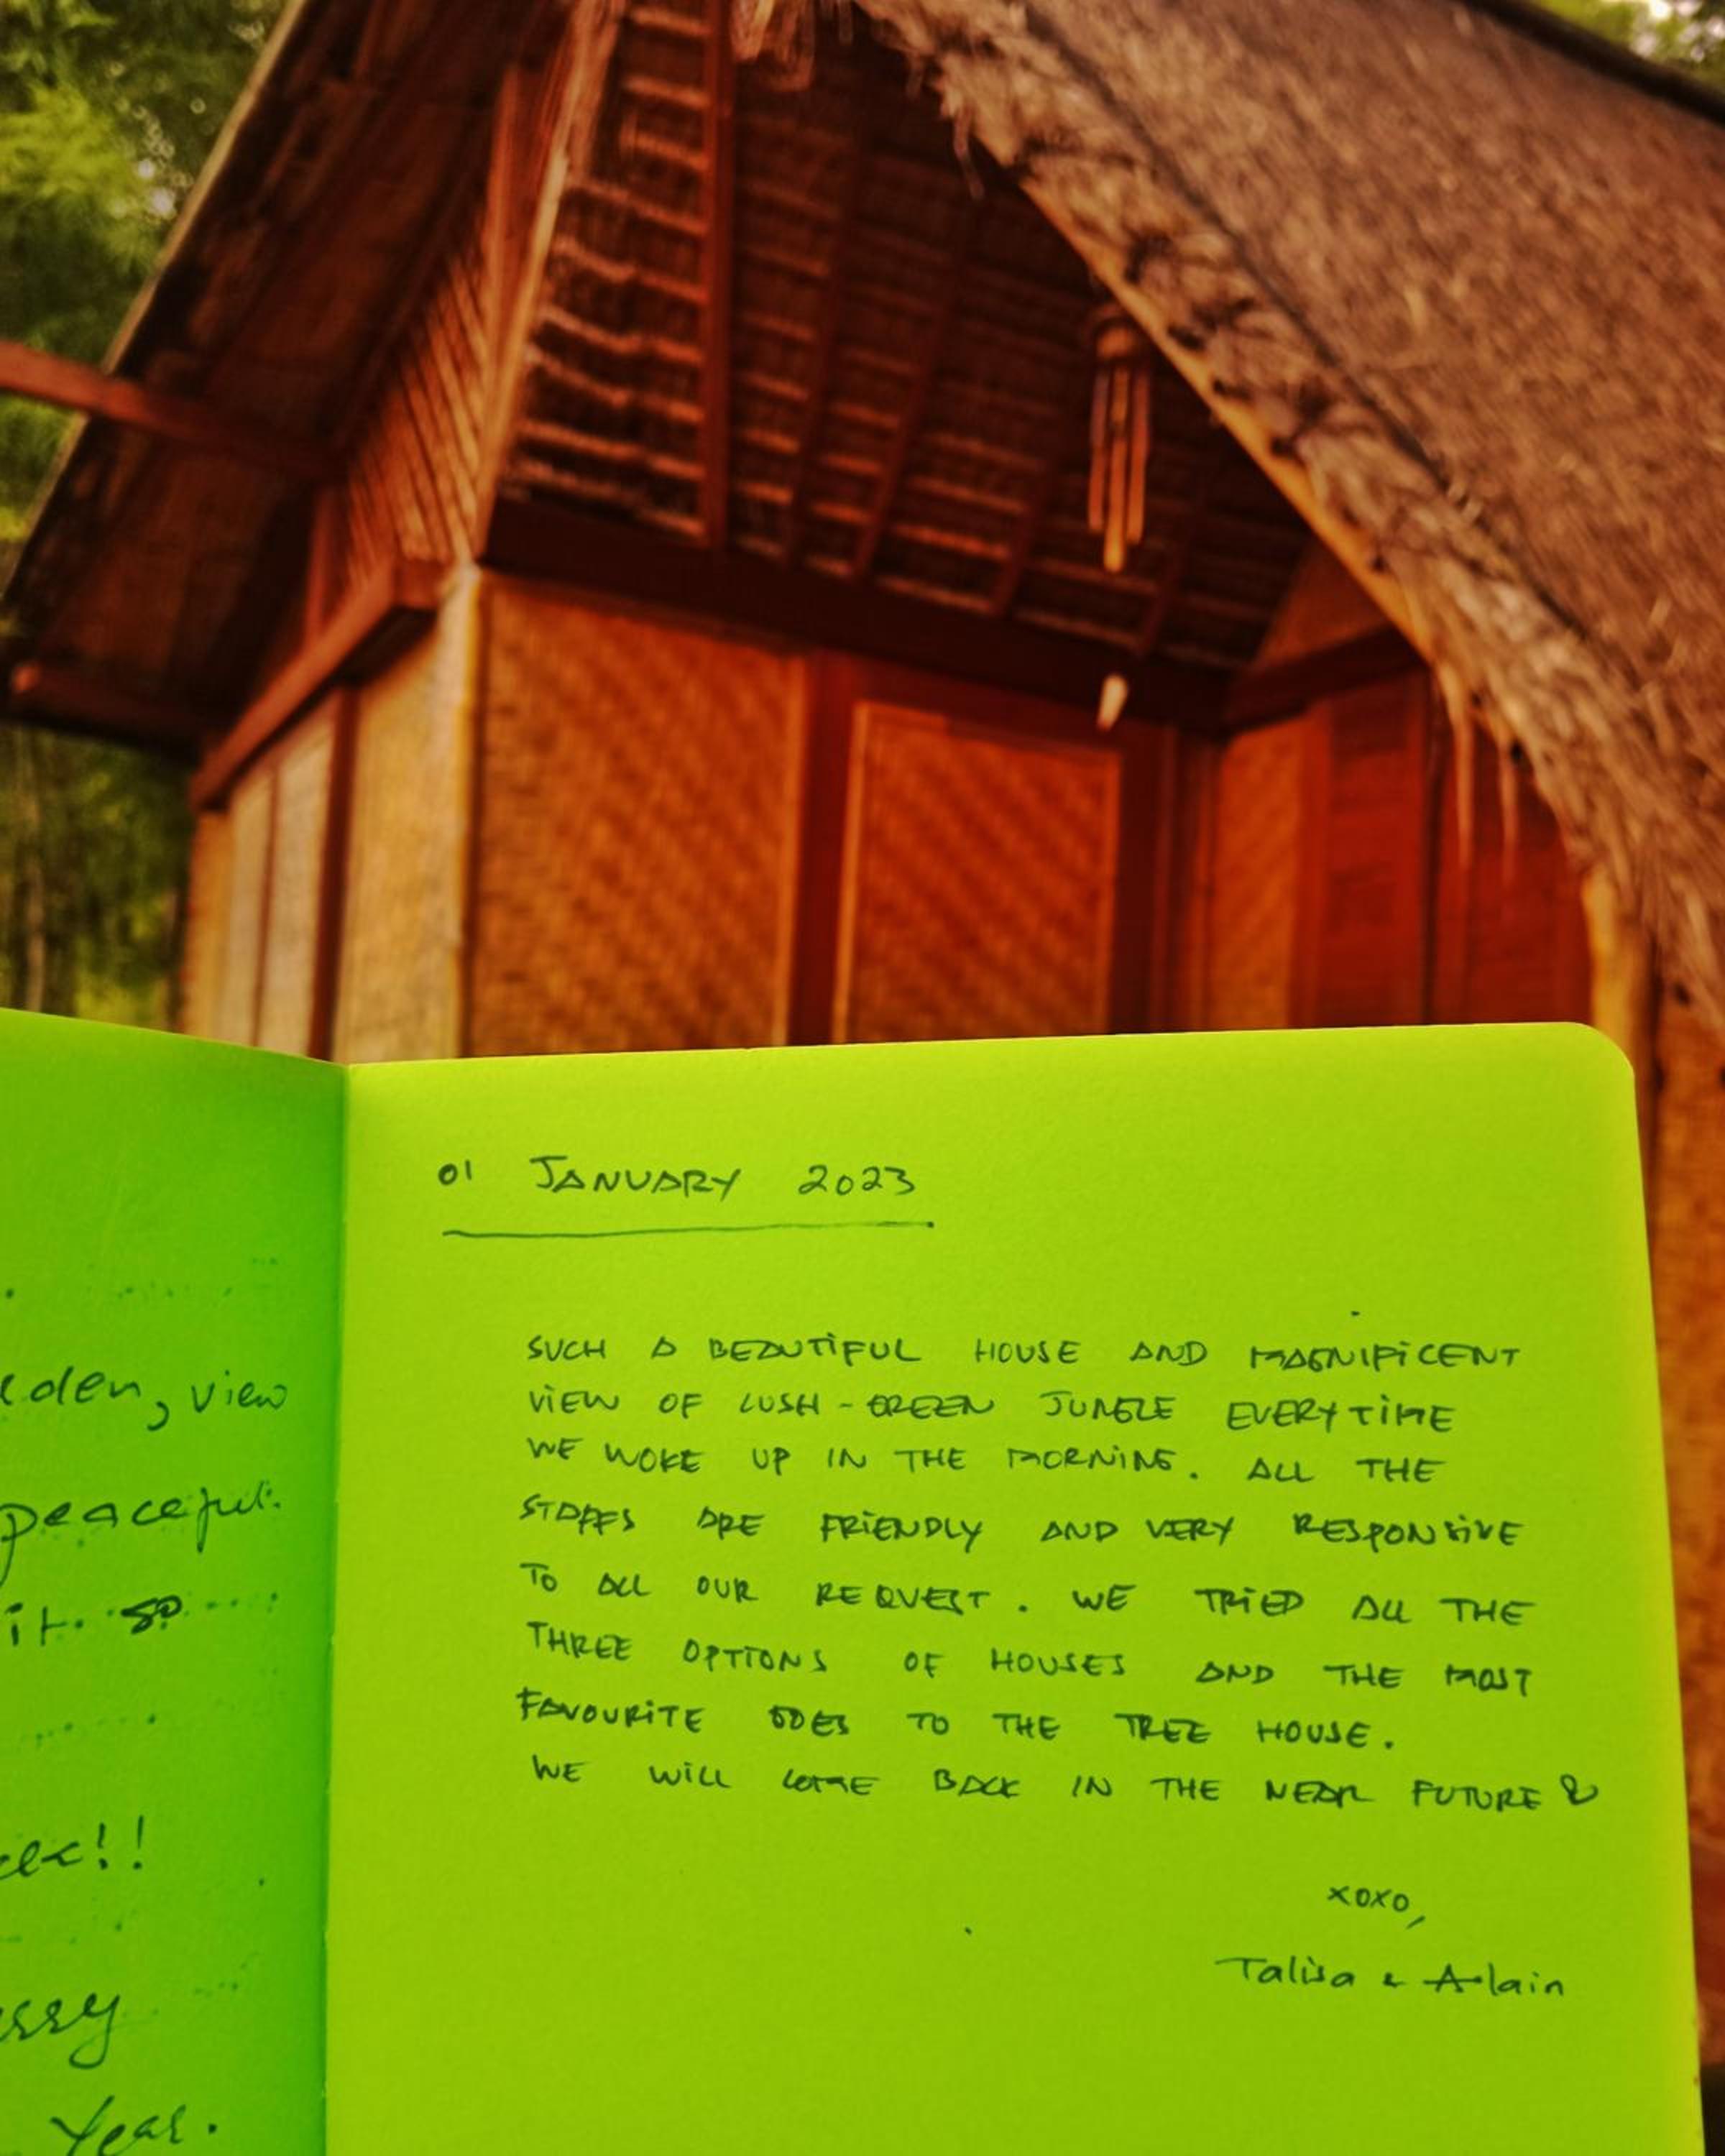 den, view
peaceful.
it. so
!!
Year.
01 JANUARY 2023
SUCH A BEAUTIFUL HOUSE AND MAGNIFICENT
VIEW OF LUSH-GREEN JUNGLE EVERYTIME
WE WOKE UP IN THE MORNING. ALL THE
STAFFS ARE FRIENDLY AND VERY RESPONSIVE
TO ALL OUR REQUEST. WE TRIED ALL THE
THREE OPTIONS OF HOUSES AND THE MOST
FAVOURITE GOES TO THE TREE HOUSE.
WE WILL COME BACK IN THE NEAR FUTURE
XOXO,
Talisa & Alain